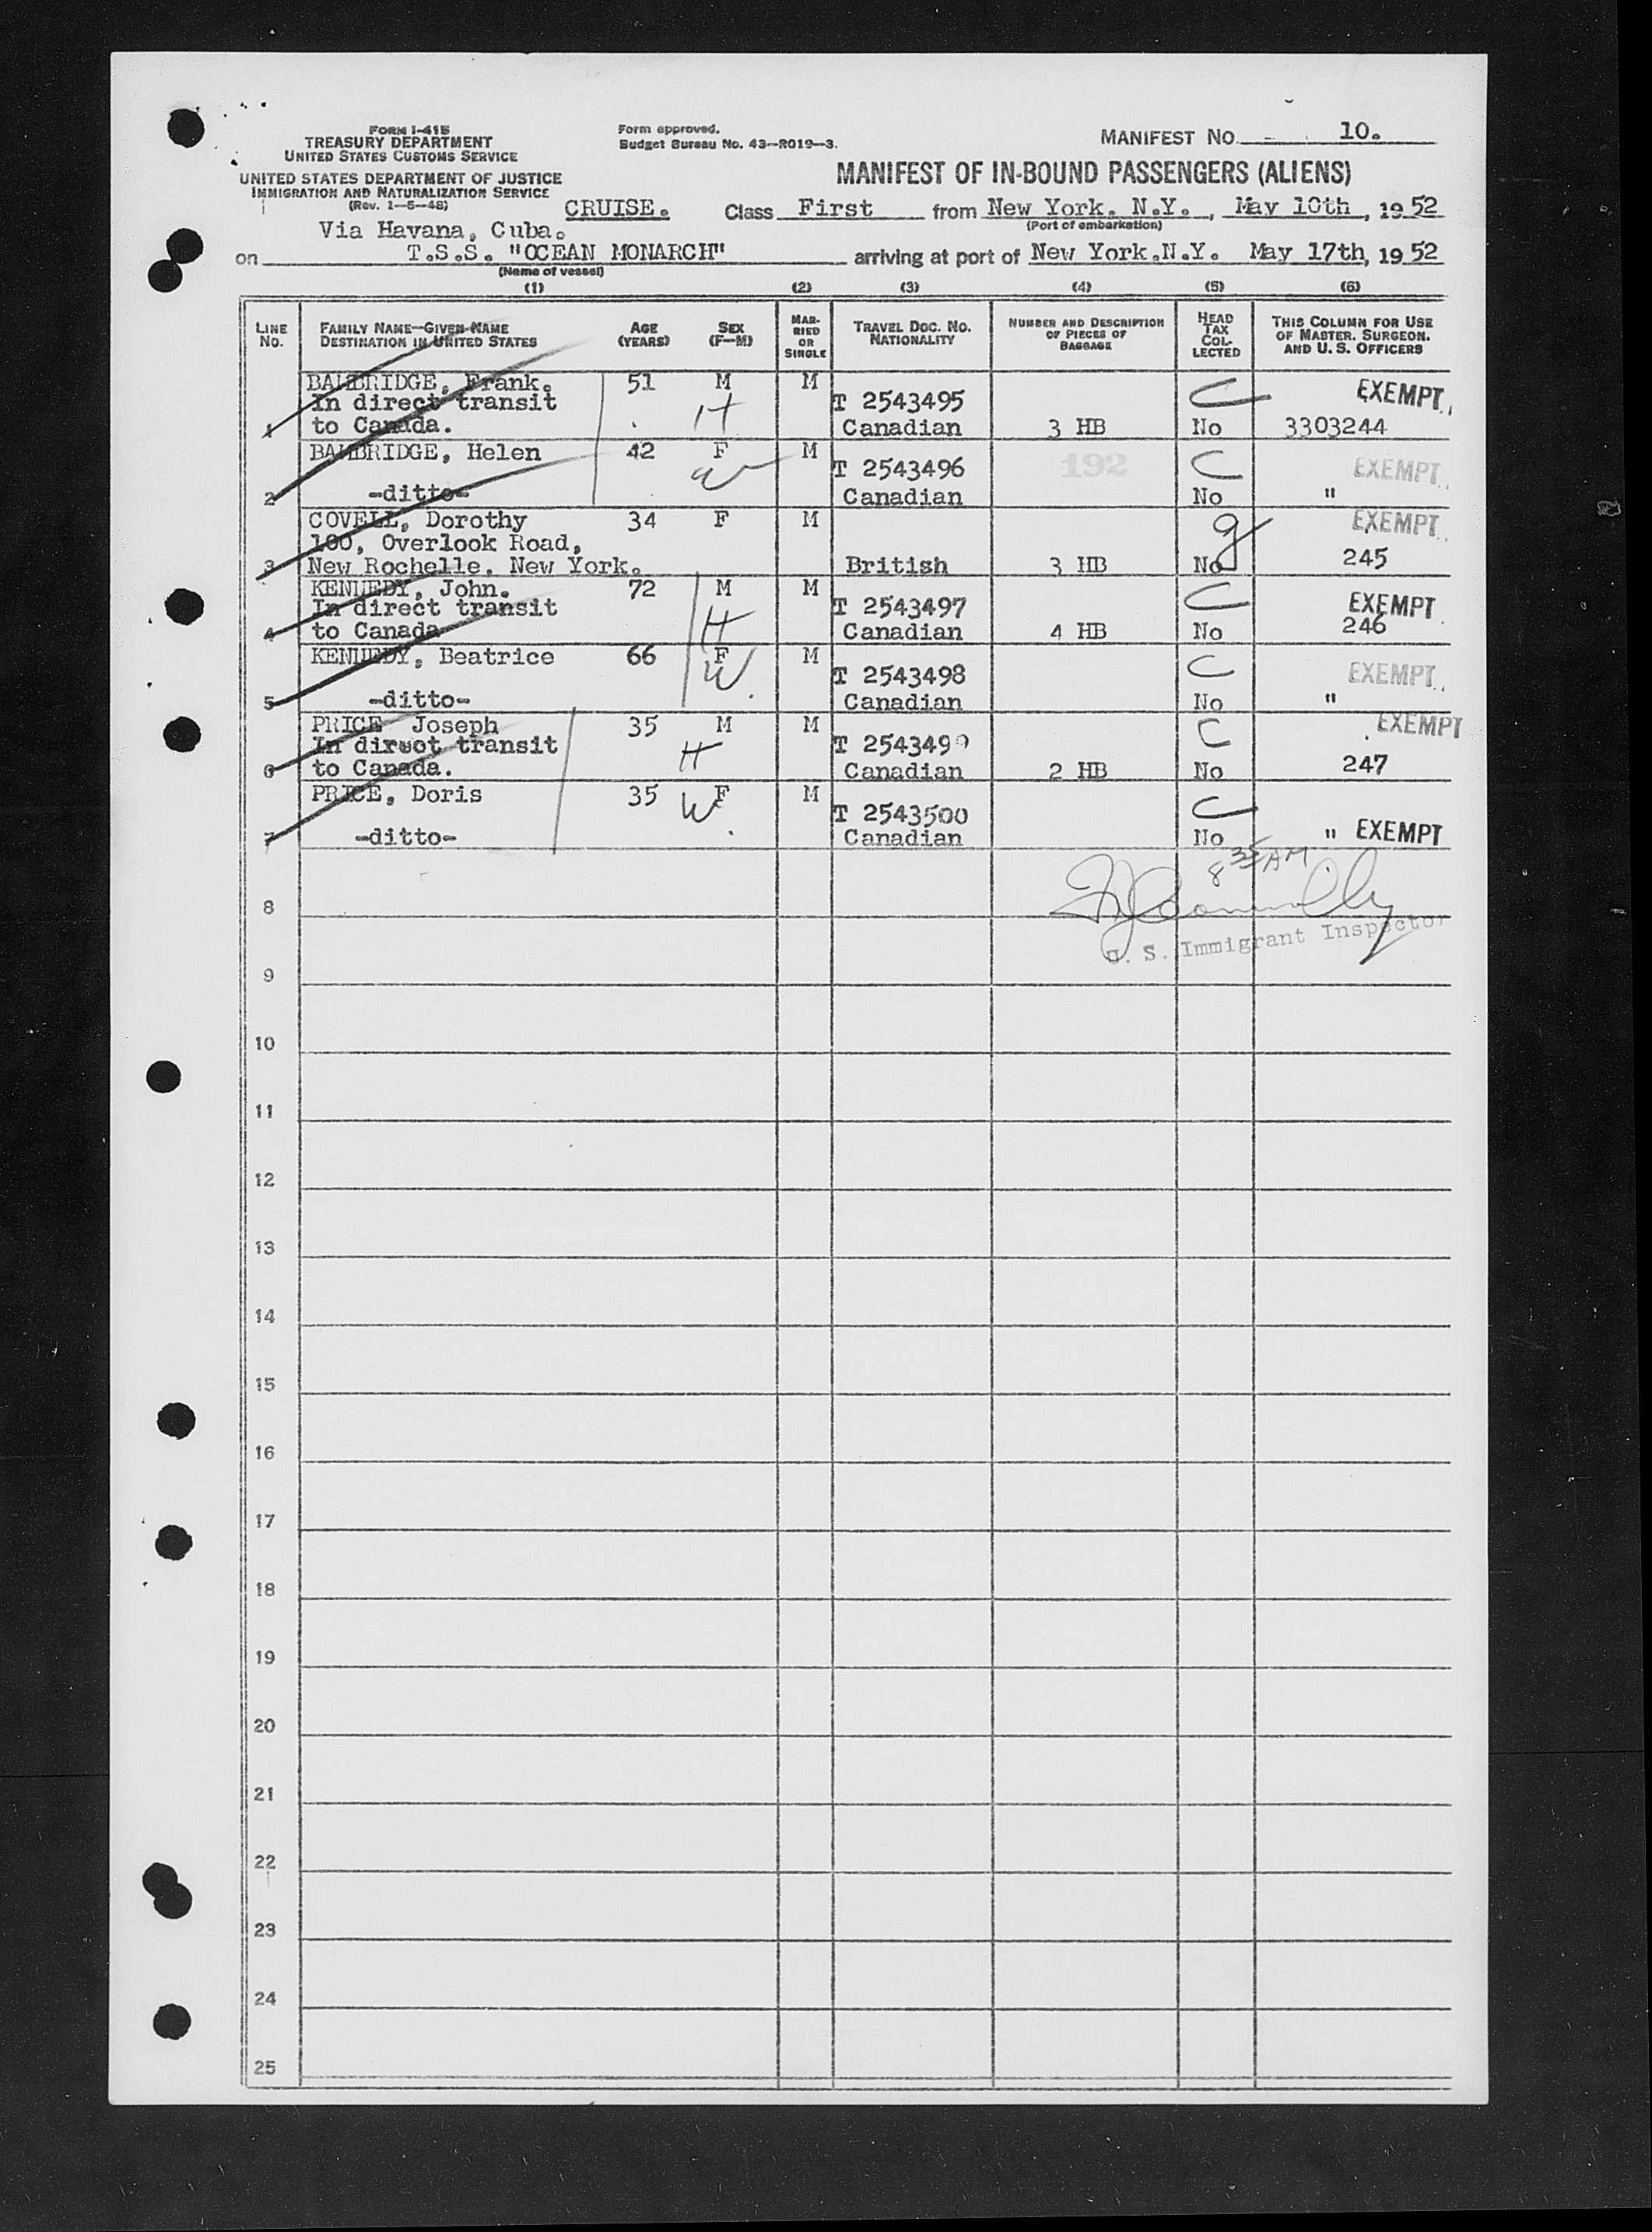 FORM I-415
TREASURY DEPARTMENT
UNITED STATES CUSTOMS SERVICE
UNITED STATES DEPARTMENT OF JUSTICE
IMMIGRATION AND NATURALIZATION SERVICE
(Rev. 1-5-48)
Form approved.
Budget Bureau No. 43-R019-3.
MANIFEST No. 10.
MANIFEST OF IN-BOUND PASSENGERS (ALIENS)
CRUISE. Class First from New York, N.Y., May 10th, 1952
(Port of embarkation)
Via Havana, Cuba.
on T.S.S. "OCEAN MONARCH" arriving at port of New York.N.Y. May 17th, 1952
(Name of vessel)
(1) (2) (3) (4) (5) (6)
LINE No. FAMILY NAME—GIVEN NAME DESTINATION IN UNITED STATES AGE (YEARS) SEX (F—M) MARRIED OR SINGLE TRAVEL DOC. NO. NATIONALITY NUMBER AND DESCRIPTION OF PIECES OF BAGGAGE HEAD TAX COLLECTED THIS COLUMN FOR USE OF MASTER, SURGEON, AND U. S. OFFICERS
BAMBRIDGE, Frank. 51 M M C EXEMPT
In direct transit T 2543495 H
1 to Canada. Canadian 3 HB No 3303244
BAMBRIDGE, Helen 42 F M C EXEMPT
W T 2543496 192
2 -ditto- Canadian No "
COVELL, Dorothy 34 F M EXEMPT
100, Overlook Road,
3 New Rochelle, New York. British 3 HB No 245
KENNEDY, John. 72 M M C EXEMPT
In direct transit H T 2543497
4 to Canada Canadian 4 HB No 246
KENNEDY, Beatrice 66 F M C EXEMPT
W T 2543498
5 -ditto- Canadian No "
PRICE Joseph 35 M M C EXEMPT
In direct transit H T 2543499
6 to Canada. Canadian 2 HB No 247
PRICE, Doris 35 F M C
W T 2543500
7 -ditto- Canadian No " EXEMPT
8 35 AM
8
U. S. Immigrant Inspector
9
10
11
12
13
14
15
16
17
18
19
20
21
22
23
24
25